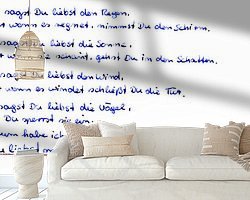 sagst Du liebst den Regen,
wenn es regnet, nimmst Du den Schirm.
sagst Du liebst die Sonne,
scheint, gehst Du in den Schatten.
sagst Du liebst den Wind,
wenn es windet schließt Du die Tür.
sagst Du liebst die Vögel,
Du sperrst sie ein.
habe ich
Du liebst